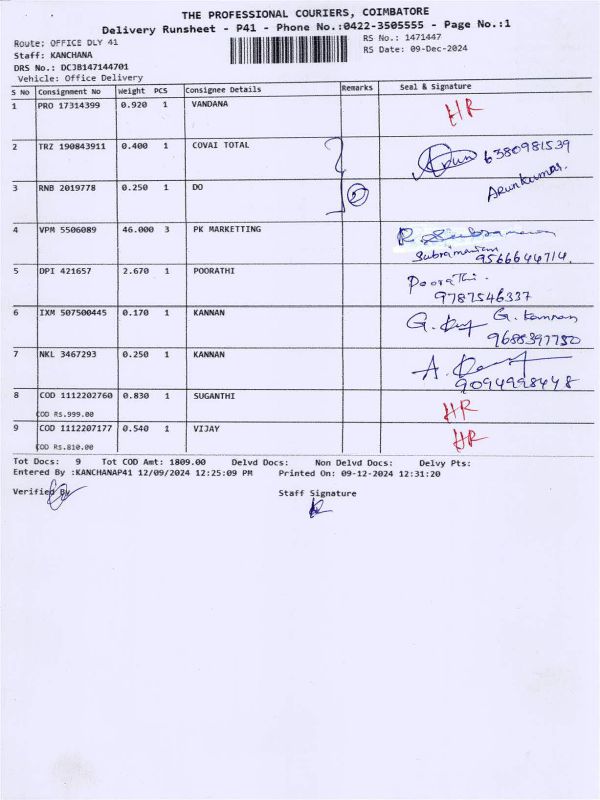 THE PROFESSIONAL COURIERS, COIMBATORE
Delivery Runsheet - P41 - Phone No.:0422-3505555 - Page No.:1
Route: OFFICE DLY 41 RS No.: 1471447
Staff: KANCHANA RS Date: 09-Dec-2024
DRS No.: DC3B147144701
Vehicle: Office Delivery
S No Consignment No Weight PCS Consignee Details Remarks Seal & Signature
1 PRO 17314399 0.920 1 VANDANA HR
2 TRZ 190843911 0.400 1 COVAI TOTAL Arun 6380981539
Arunkumar.
3 RNB 2019778 0.250 1 DO 2
4 VPM 5506089 46.000 3 PK MARKETTING R. Subramaniam
Subramaniam
9566644714.
5 DPI 421657 2.670 1 POORATHI Poorathi.
9787546337
6 IXM 507500445 0.170 1 KANNAN G. Kannan
9688397750
7 NKL 3467293 0.250 1 KANNAN A.
9094998448
8 COD 1112202760 0.830 1 SUGANTHI HR
COD RS.999.00
9 COD 1112207177 0.540 1 VIJAY HR
COD RS.810.00
Tot Docs: 9 Tot COD Amt: 1809.00 Delvd Docs: Non Delvd Docs: Delvy Pts:
Entered By :KANCHANAP41 12/09/2024 12:25:09 PM Printed On: 09-12-2024 12:31:20
Verified By Staff Signature